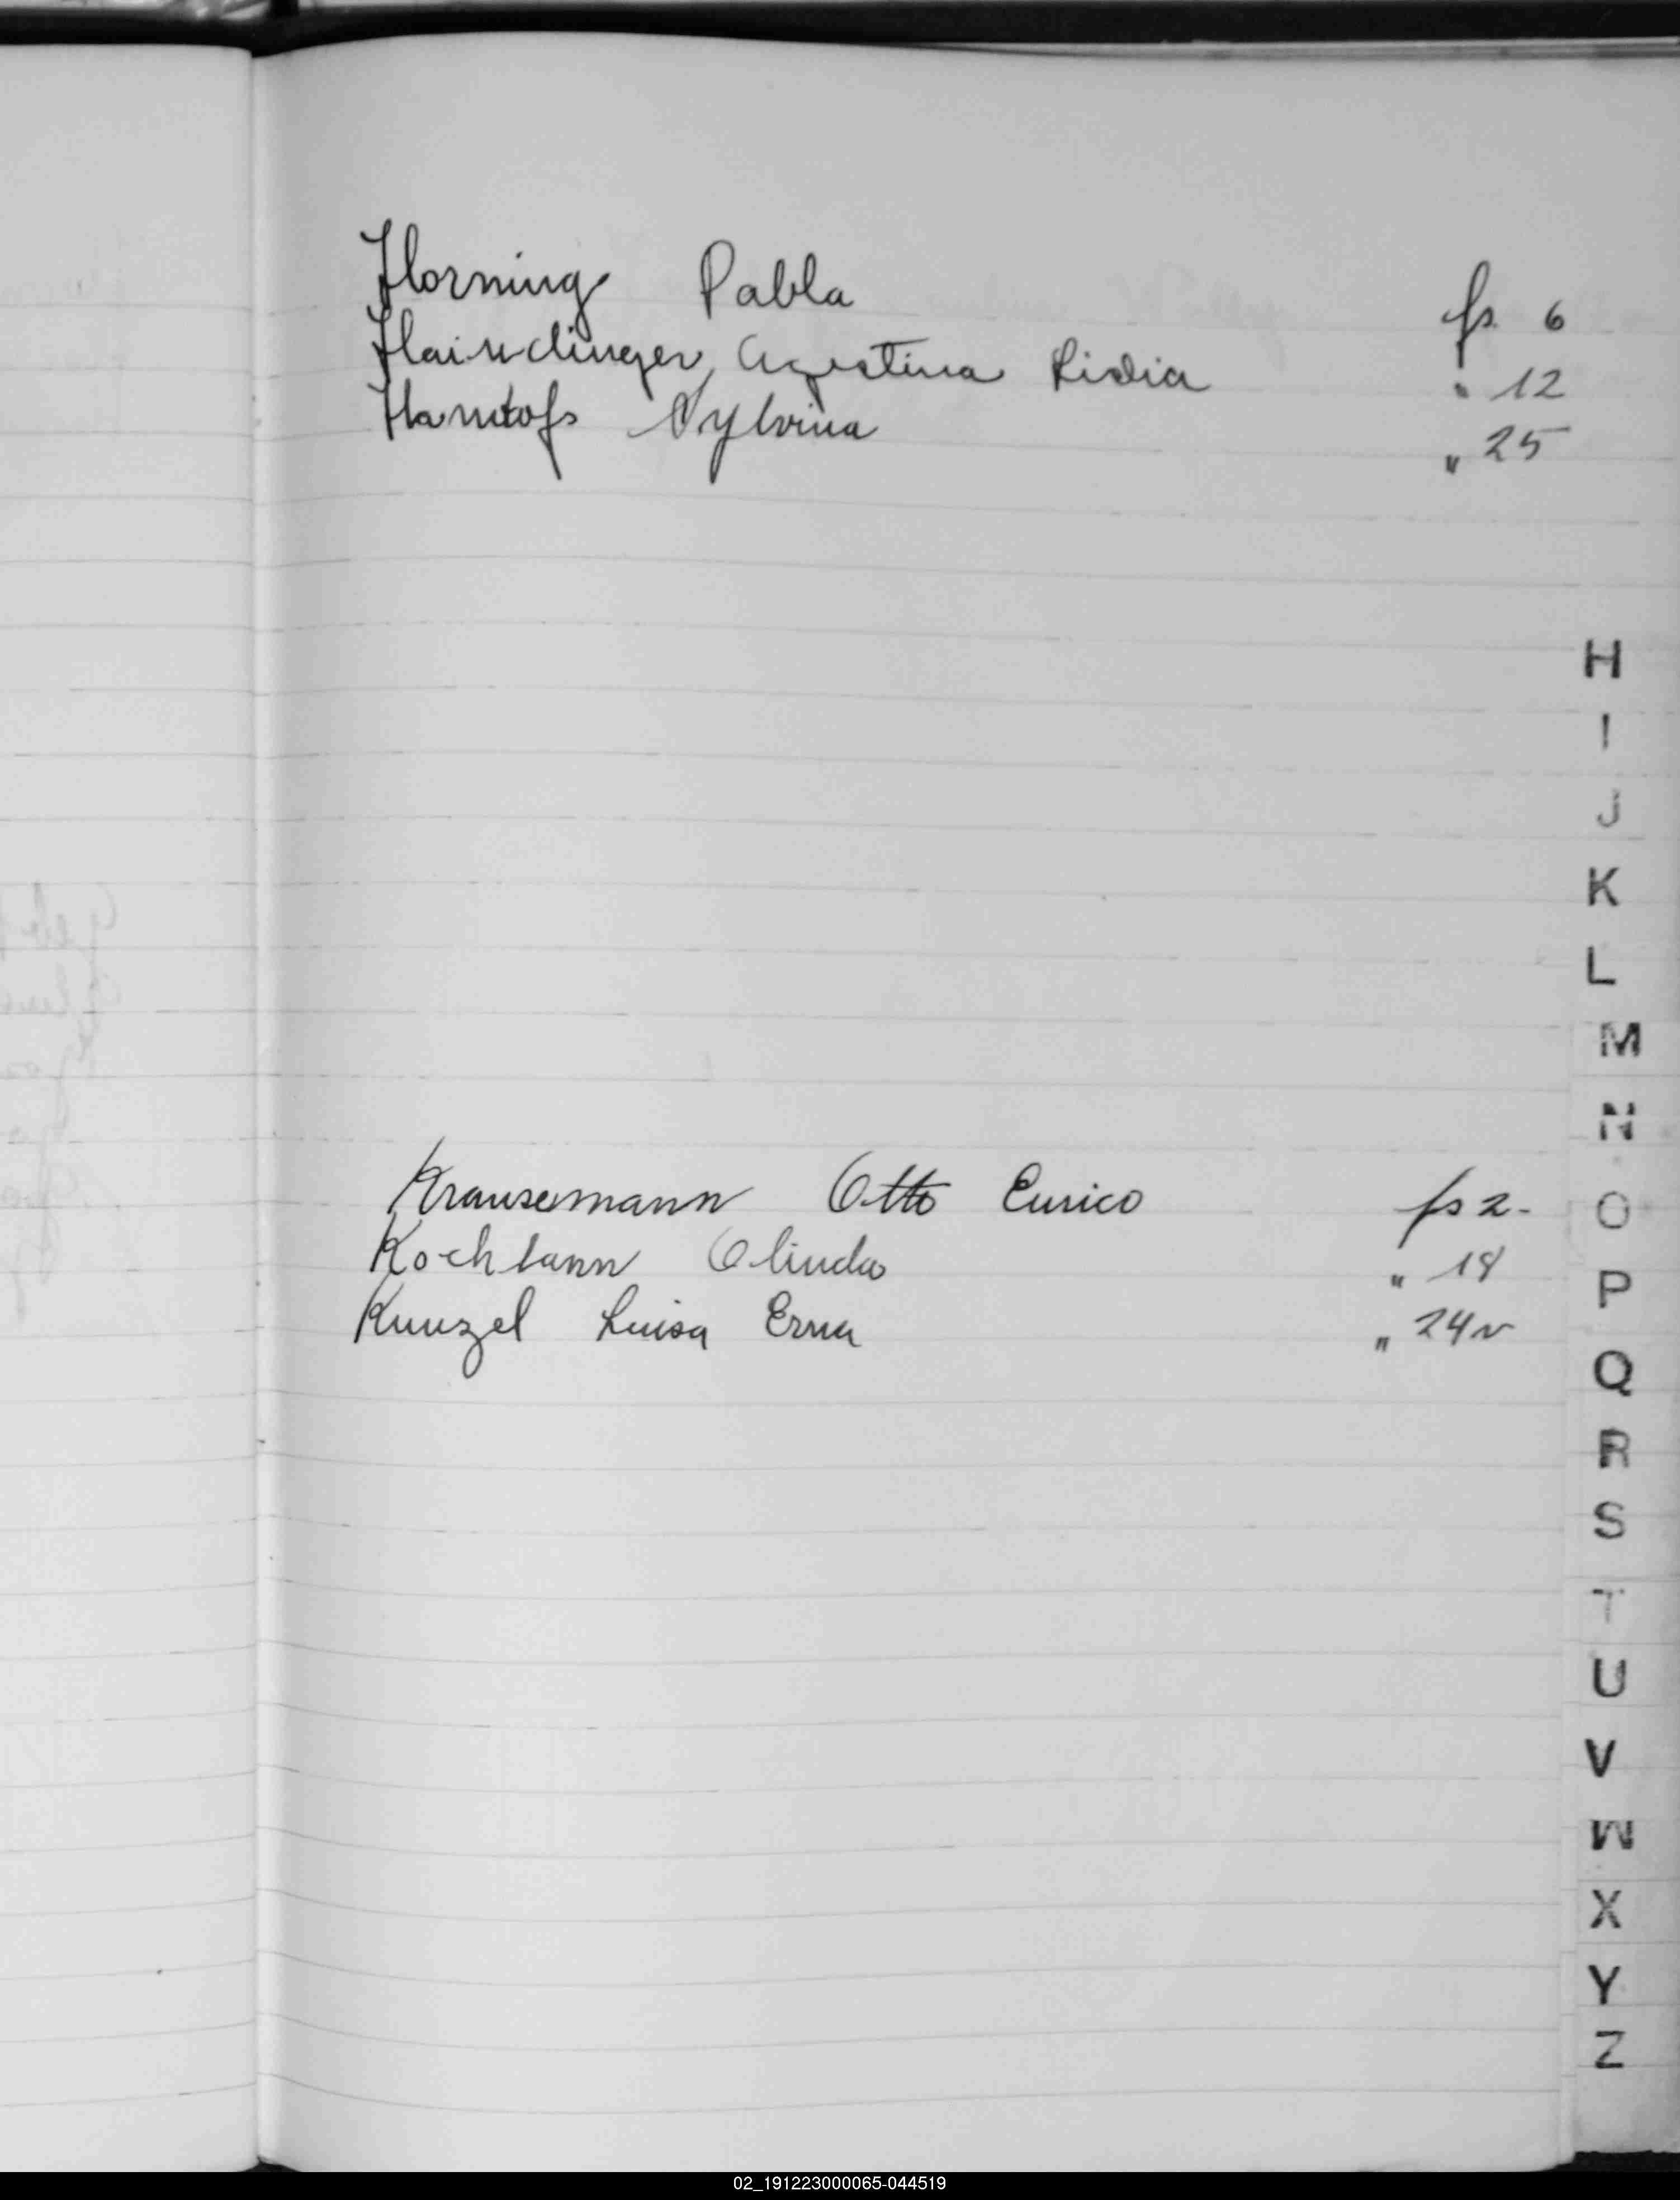 Horning Pabla fs. 6
Haindinger, Agustina Lidia " 12
Sylvina " 25
H
I
J
K
L
M
N
Krausemann Otto Eurico fs 2-
O
Kochlann Olinda " 18
P
Kunzel Luisa Erna " 24v
Q
R
S
T
U
V
W
X
Y
Z
02_191223000065-044519